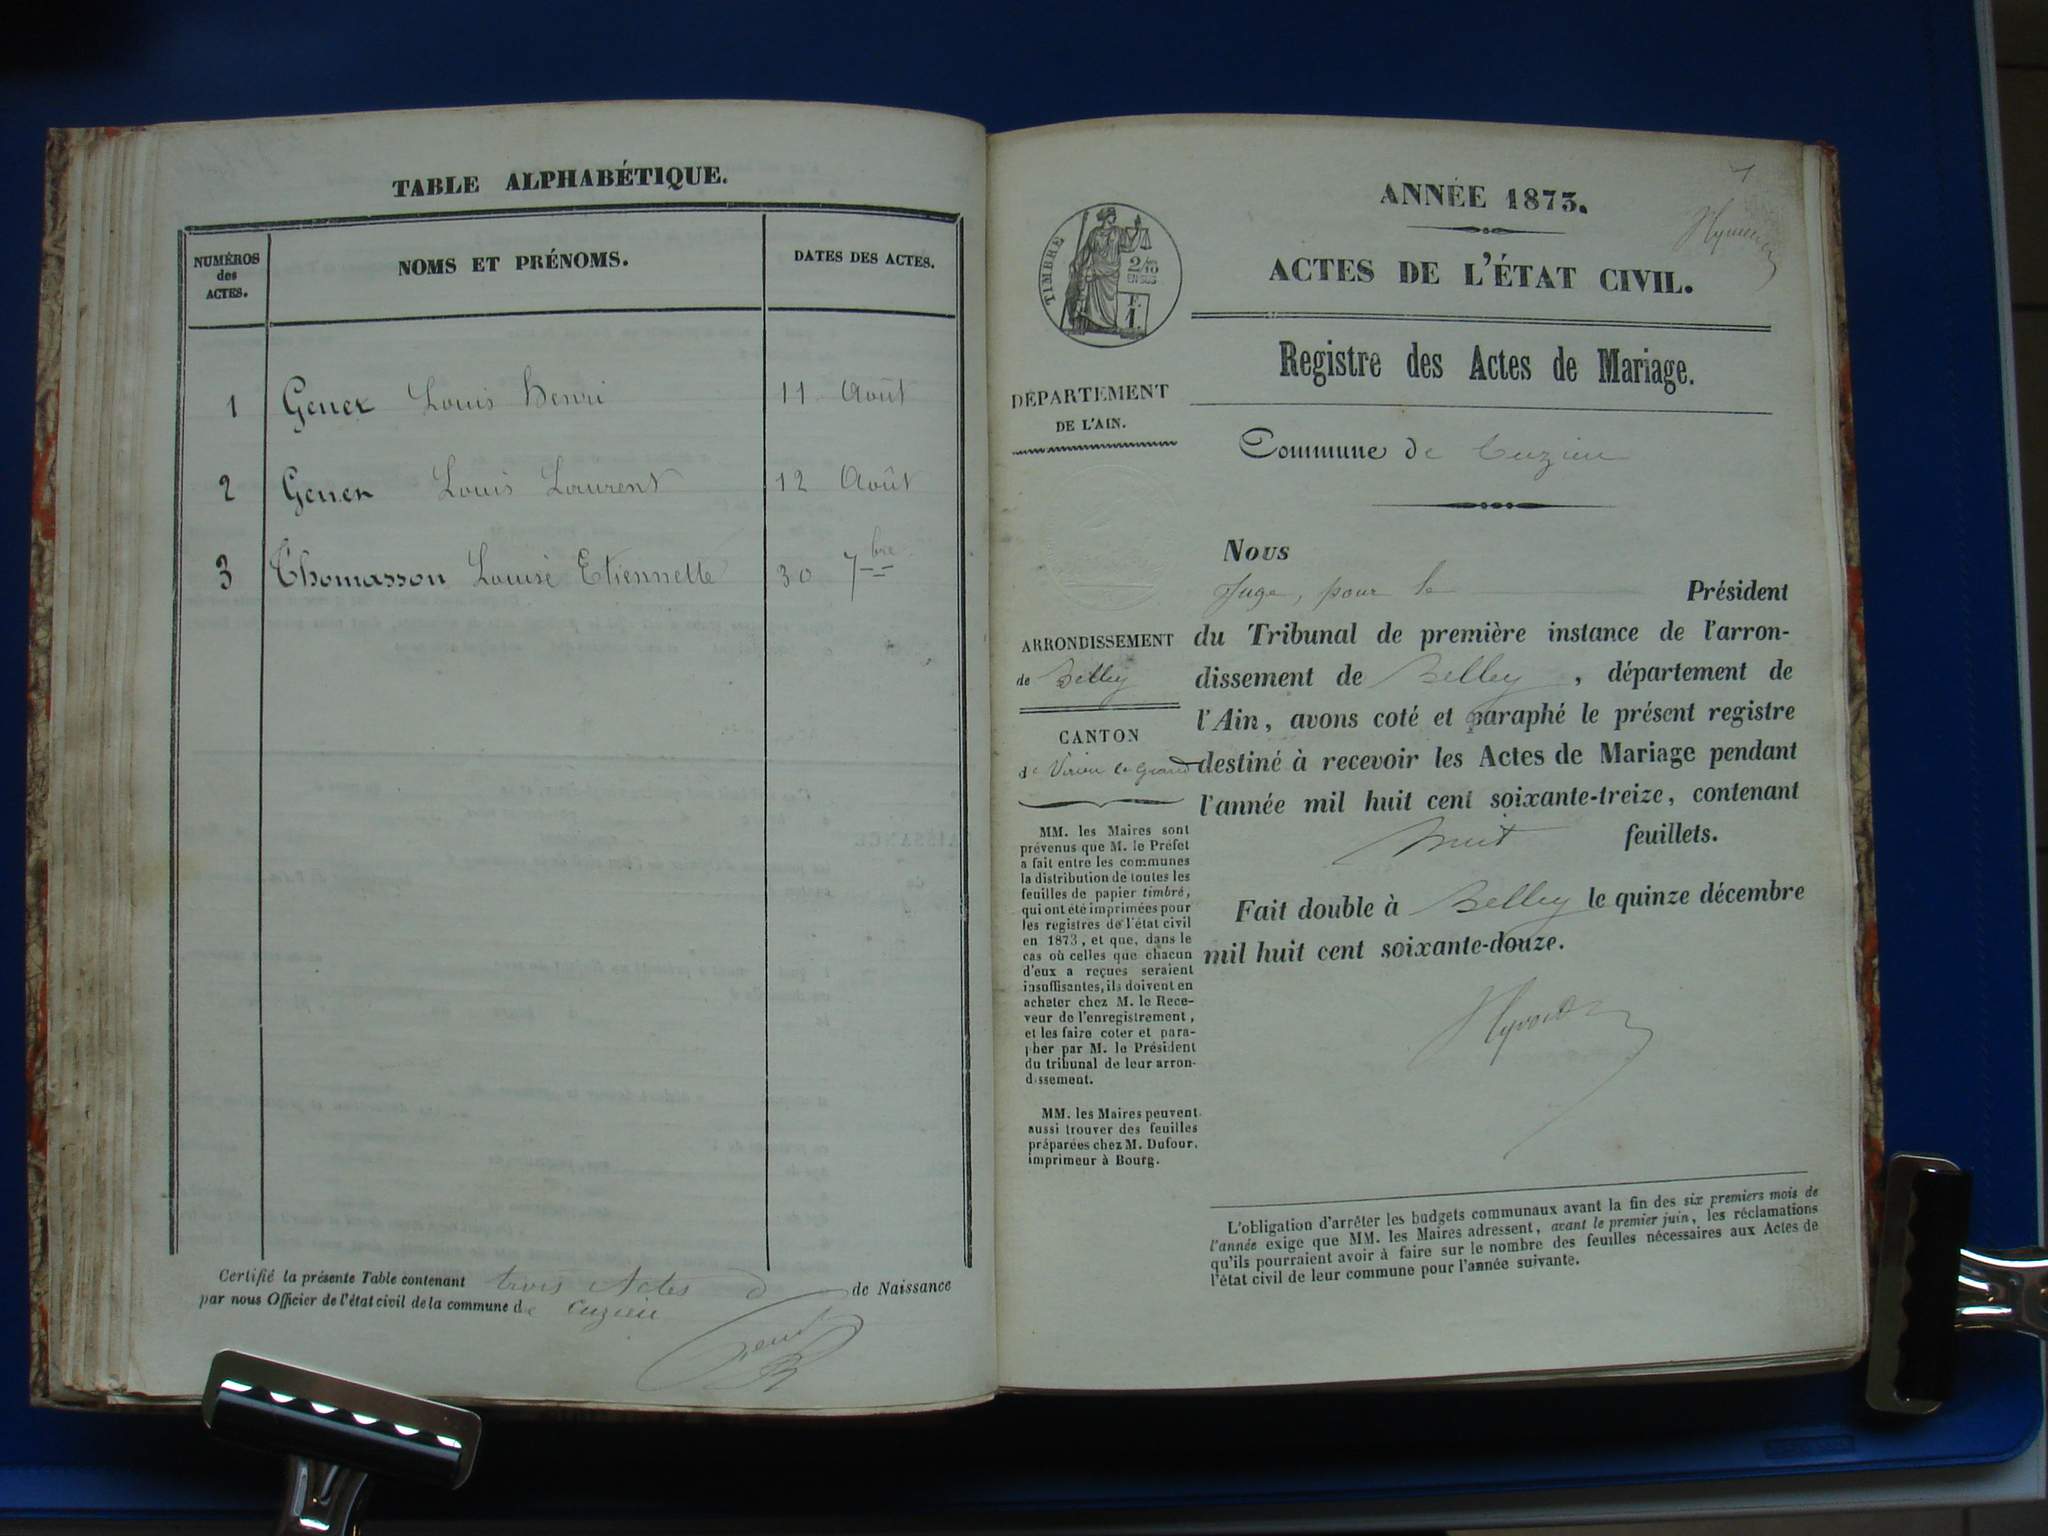 TABLE ALPHABÉTIQUE.
NUMÉROS
des
ACTES.
NOMS ET PRÉNOMS.
DATES DES ACTES.
1 Gener Louis Henri 11 Août
2 Gener Louis Laurent 12 Août
3 Thomasson Louise Etiennette 30 7bre
Certifié la présente Table contenant trois Actes de Naissance
par nous Officier de l'état civil de la commune de Cuzieu
1
ANNÉE 1873.
ACTES DE L'ÉTAT CIVIL.
TIMBRE
2/10
EN SUS
F.
1.
Registre des Actes de Mariage.
DÉPARTEMENT
DE L'AIN.
Commune de Cuzieu
Nous
Juge, pour le Président
du Tribunal de première instance de l'arron-
dissement de Belley, département de
l'Ain, avons coté et paraphé le présent registre
destiné à recevoir les Actes de Mariage pendant
l'année mil huit cent soixante-treize, contenant
huit feuillets.
Fait double à Belley le quinze décembre
mil huit cent soixante-douze.
ARRONDISSEMENT
de Belley
CANTON
de Virieu le Grand
MM. les Maires sont
prévenus que M. le Préfet
a fait entre les communes
la distribution de toutes les
feuilles de papier timbré,
qui ont été imprimées pour
les registres de l'état civil
en 1873, et que, dans le
cas où celles que chacun
d'eux a reçues seraient
insuffisantes, ils doivent en
acheter chez M. le Rece-
veur de l'enregistrement,
et les faire coter et para-
pher par M. le Président
du tribunal de leur arron-
dissement.
MM. les Maires peuvent
aussi trouver des feuilles
préparées chez M. Dufour,
imprimeur à Bourg.
L'obligation d'arrêter les budgets communaux avant la fin des six premiers mois de
l'année exige que MM. les Maires adressent, avant le premier juin, les réclamations
qu'ils pourraient avoir à faire sur le nombre des feuilles nécessaires aux Actes de
l'état civil de leur commune pour l'année suivante.